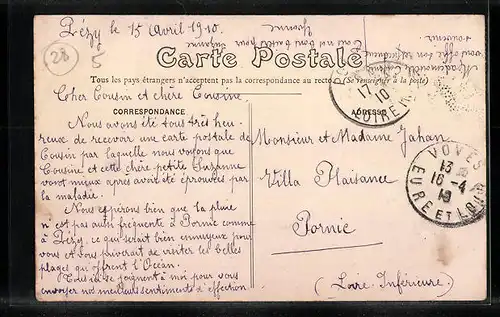 Pézy le 15 Avril 1910.
28
5
Carte Postale
Tous les pays étrangers n'acceptent pas la correspondance au recto (Se renseigner à la poste)
CORRESPONDANCE
ADRESSE
Cher Cousin et chère Cousine
Nous avons été tous très heu-
reux de recevoir une carte postale de
Cousin par laquelle nous voyons que
Cousine et cette chère petite Suzanne
vont mieux après avoir été éprouvées par
la maladie.
Nous espérons bien que la pluie
n'est pas aussi fréquente à Pornic comme
à Pézy, ce qui serait bien ennuyeux pour
vous et vous priverait de visiter les belles
plages qui offrent l'Océan.
Tous ici se joignent à moi pour vous
envoyer nos meilleurs sentiments d'affection
Monsieur et Madame Jahan
Villa Plaisance
Pornic
(Loire Inférieure)
17
10
VOVES
13
16-4
10
EURE ET LOIR